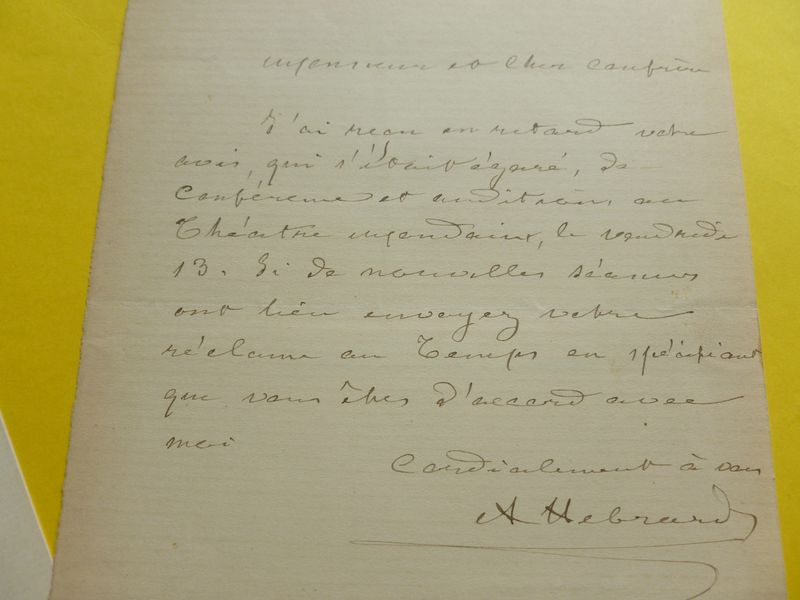 Monsieur et cher confrère
J'ai reçu en retard votre
avis, qui s'était égaré, de
conférence et auditions au
Théâtre mondain, le vendredi
13. Si de nouvelles séances
ont lieu envoyez votre
réclame au Temps en spécifiant
que vous êtes d'accord avec
moi
Cordialement à vous
A Hebrard